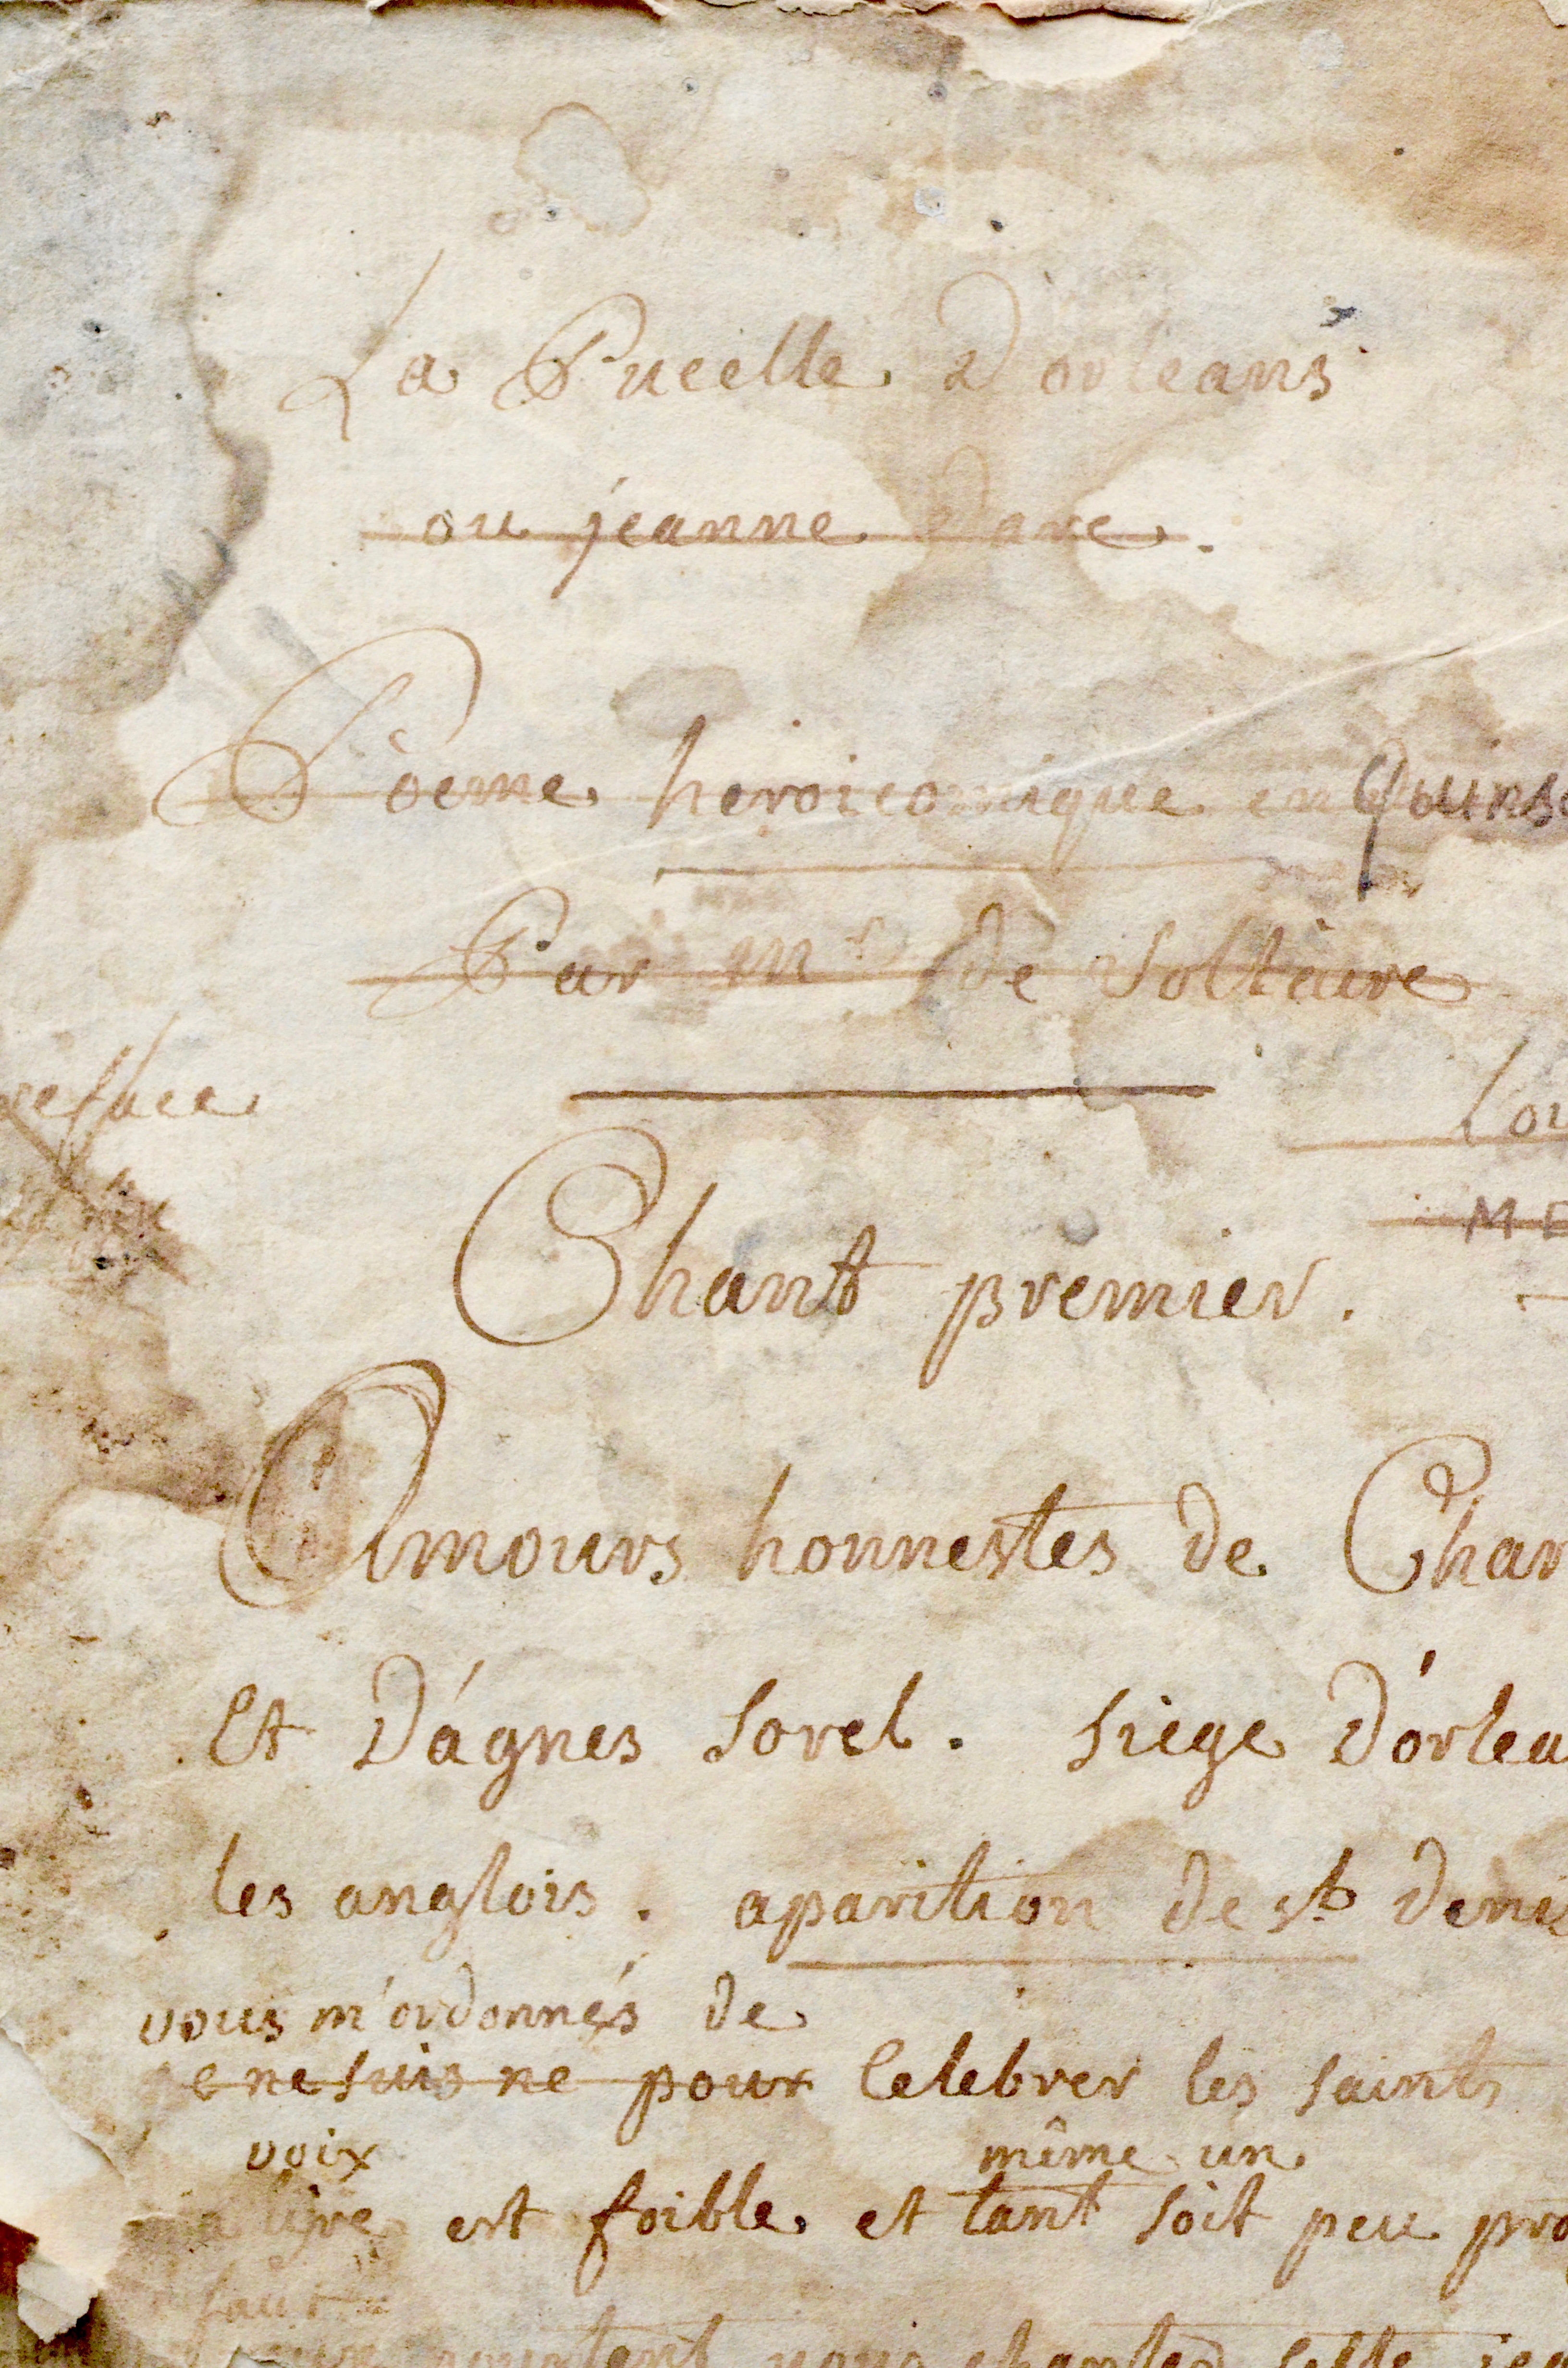 La Pucelle D'orleans
ou jeanne Darc.
Pòeme heroicomique en Quinse
Par Mr. de Voltaire
reface
Lou
ME
Chant premier.
Amours honnestes de Char
Et D'agnes Sorel. siege D'orlea
les anglois. aparition de st. Denis
vous m'ordonnés de
je ne suis ne pour Celebrer les saints
voix même un
ma lyre est foible et tant soit peu pro
faut
pourtant vous chanter cette jea